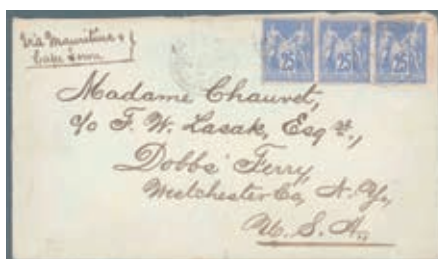 Via Mauritius &
Cape Town
25 25 25
Madame Chauvet,
c/o F. W. Lasak, Esqre.,
Dobbs' Ferry,
Westchester Co, N. Y.,
U. S. A.